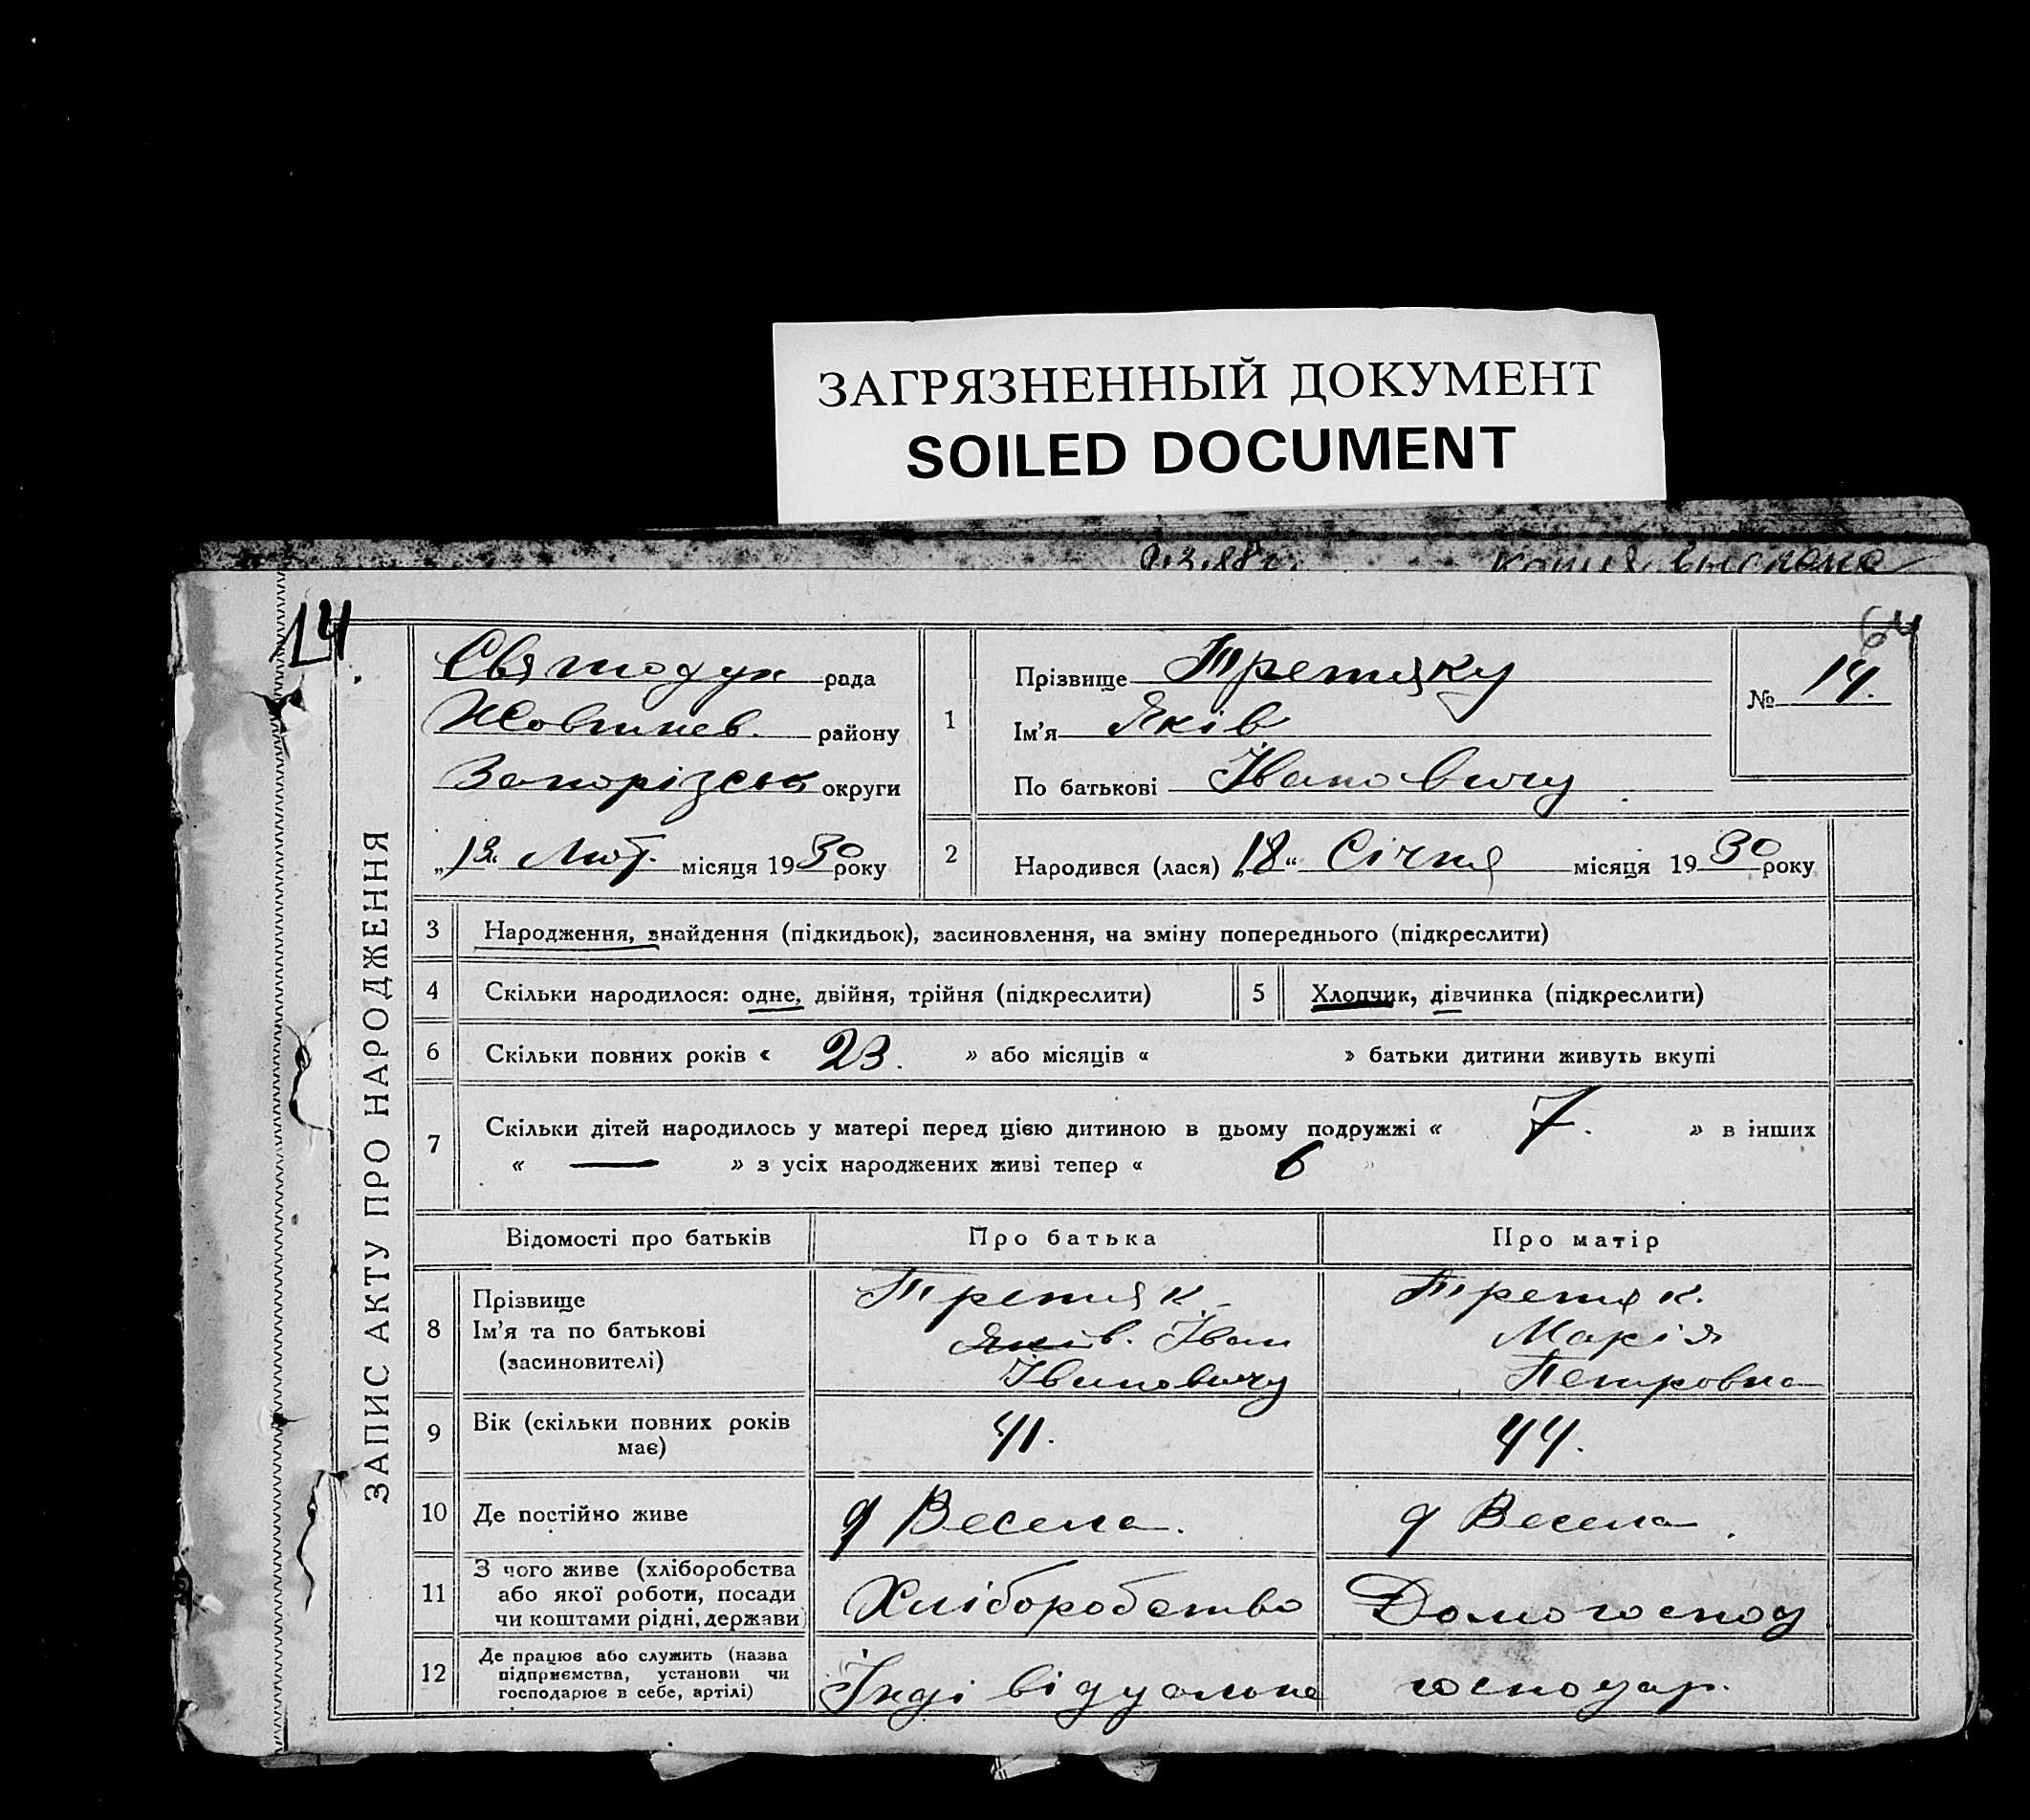 ЗАГРЯЗНЕННЫЙ ДОКУМЕНТ
SOILED DOCUMENT
копия выслана
14
64
ЗАПИС АКТУ ПРО НАРОДЖЕННЯ
Святодух рада
Жовтнев. району
Запорізськ округи
„13“ Лют. місяця 1930 року
1
Прізвище Третяку
Ім'я Яків
По батькові Івановичу
№ 14.
2 Народився (лася) „18“ Січня місяця 1930 року
3 Народження, знайдення (підкидьок), засиновлення, на зміну попереднього (підкреслити)
4 Скільки народилося: одне, двійня, трійня (підкреслити) 5 Хлопчик, дівчинка (підкреслити)
6 Скільки повних років « 23. » або місяців « » батьки дитини живуть вкупі
7 Скільки дітей народилось у матері перед цією дитиною в цьому подружжі « 7. » в інших
« — » з усіх народжених живі тепер « 6 »
Відомості про батьків Про батька Про матір
8 Прізвище Ім'я та по батькові (засиновителі)
Третяк.
Яків. Іван
Івановичу
Третяк.
Марія
Петровна
9 Вік (скільки повних років має) 41. 44.
10 Де постійно живе д Весела. д Весела.
11 З чого живе (хліборобства
або якої роботи, посади
чи коштами рідні, держави)
Хліборобство Домогоспод
12 Де працює або служить (назва
підприємства, установи чи
господарює в себе, артілі)
Індівідуольне господар.